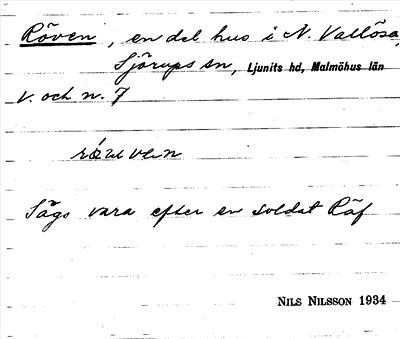 Röven, en del hus i N. Vallösa,
Sjörups sn, Ljunits hd, Malmöhus län
V. och n. 7
Sägs vara efter en soldat Räf
NILS NILSSON 1934